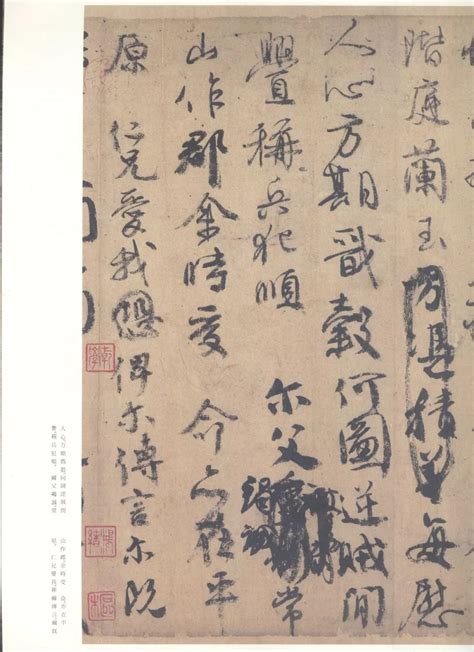 階庭蘭玉方憑積善每慰
人心方期戩穀何圖逆賊間
舋稱兵犯順 尒父竭誠常
山作郡余時受 命亦在平
原 仁兄愛我俾尒傳言尒既
人心方期戩穀何圖逆賊間
釁稱兵犯順 爾父竭誠常
山作郡余時受 命亦在平
原 仁兄愛我俾爾傳言爾既